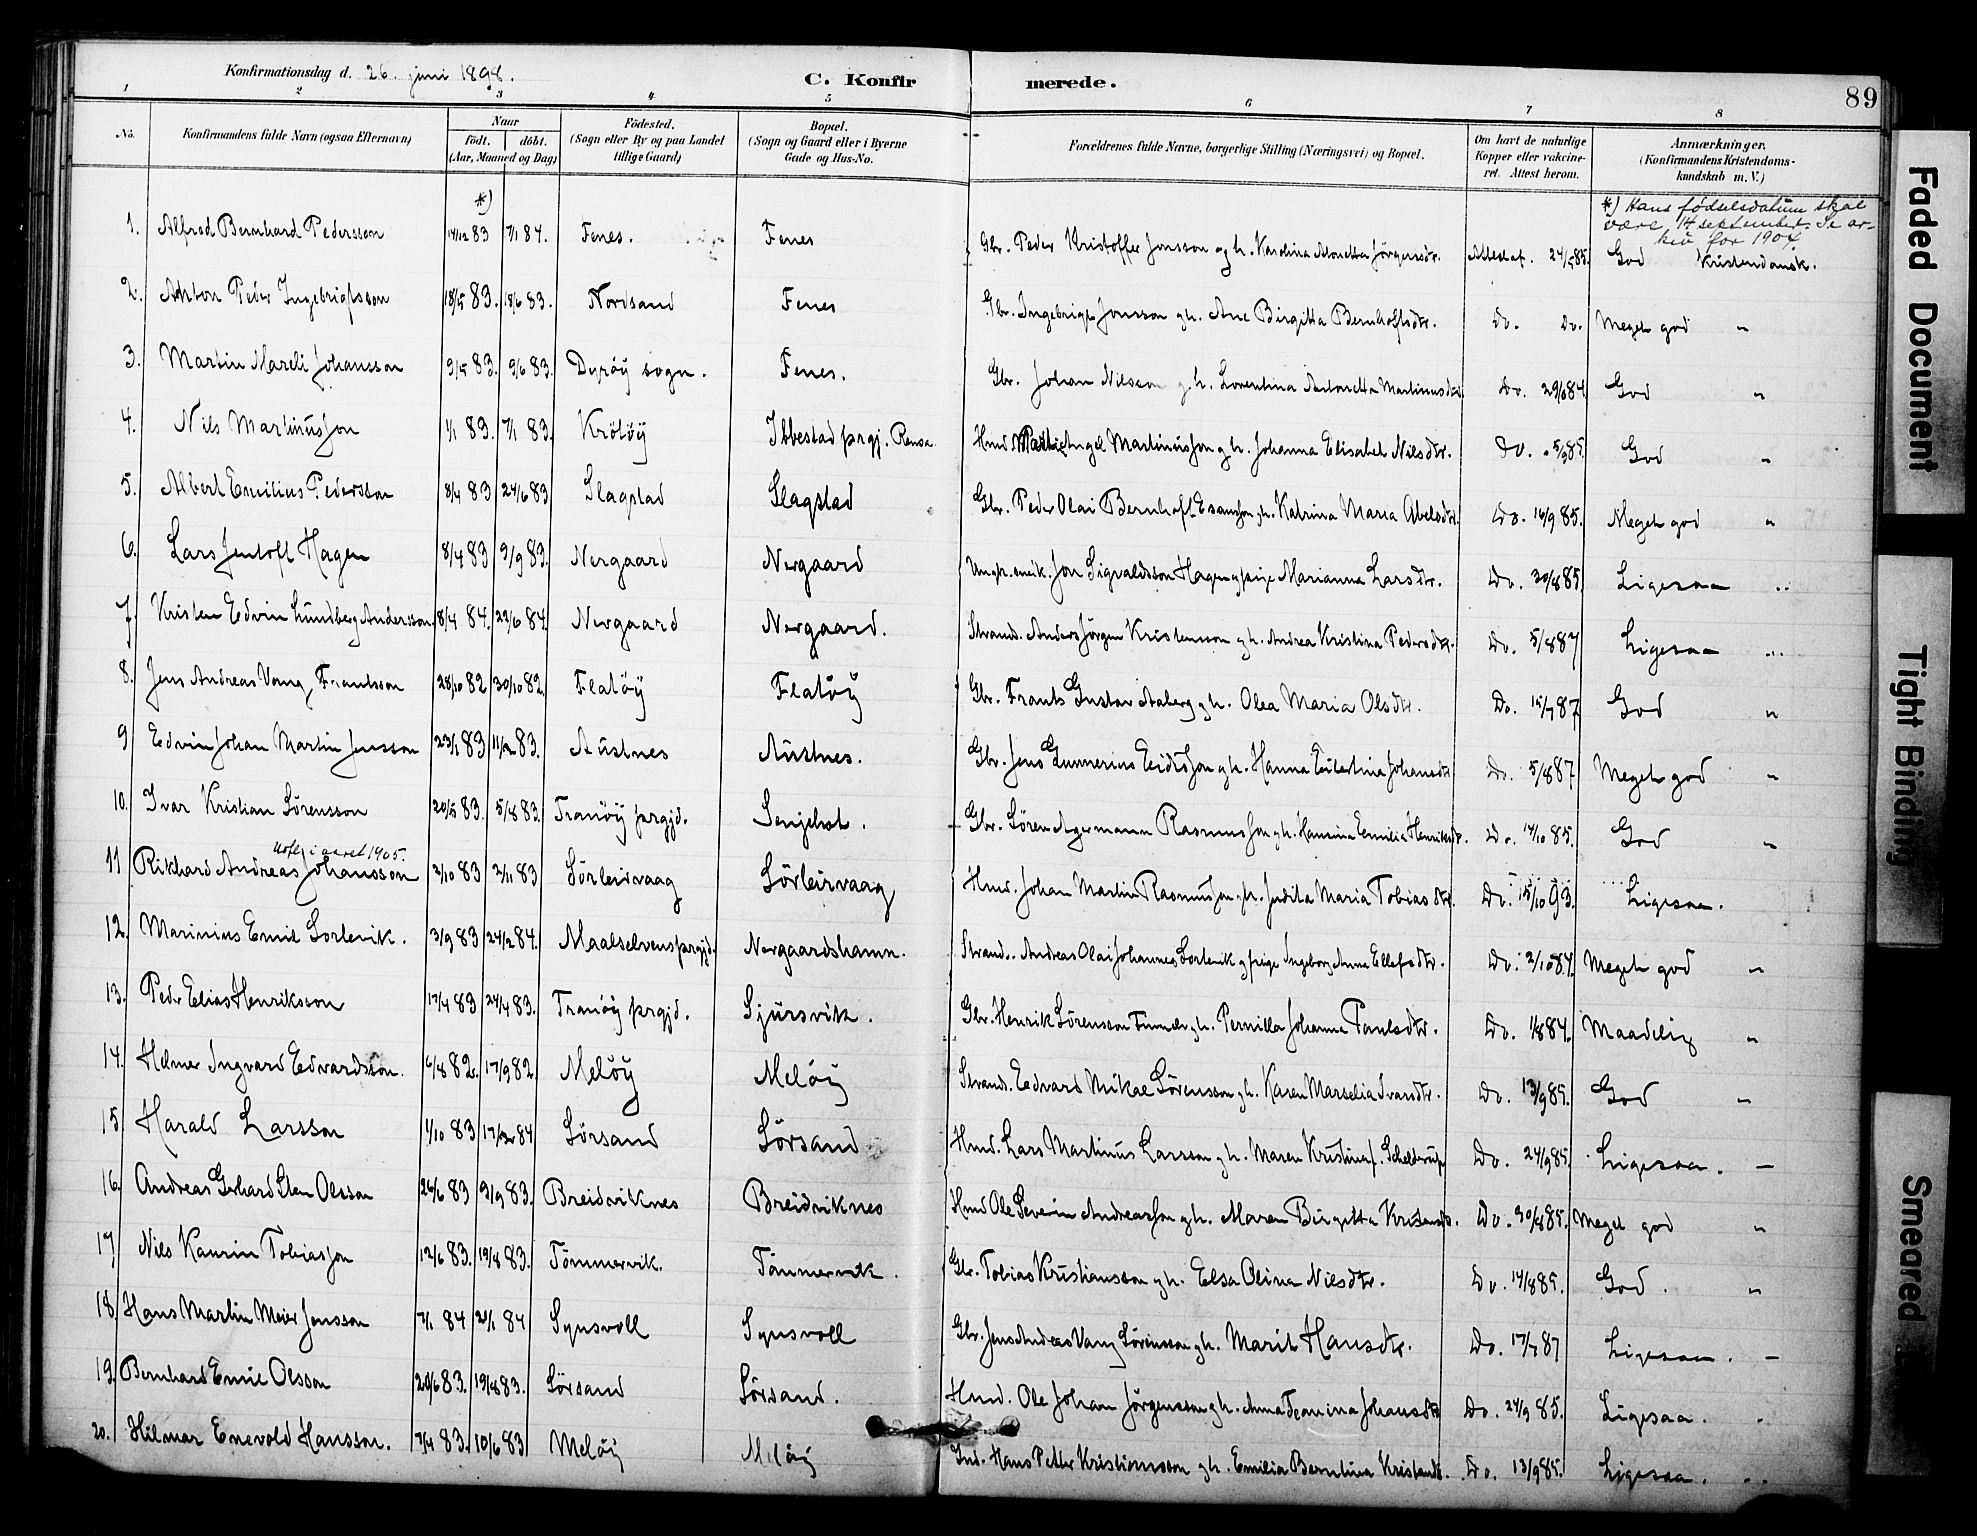 Konfirmationsdag d. 26. juni 1898. C. Konfir merede. 89
1 2 3 4 5 6 7 8
No. Konfirmandens fulde Navn (ogsaa Efternavn) Naar født. døbt. (Aar, Maaned og Dag) Fødested. (Sogn eller By og paa Landet tillige Gaard) Bopæl. (Sogn og Gaard eller i Byerne Gade og Hus-No. Forældrenes fulde Navne, borgerlige Stilling (Næringsvei) og Bopæl. Om havt de naturlige Kopper eller vakcineret. Attest herom. Anmærkninger. (Konfirmandens Kristendomskundskab m. V.)
*) *) Hans fødselsdatum skal
være 14 september. Se ar-
kiv for 1904.
1. Alfred Bernhard Pedersson 14/12 83 7/1 84. Fenes. Fenes Gbr. Peder Kristoffer Jonsson og h. Karolina Monetta Jørgensdtr. Attest af. 24/5 85. God Kristendomsk.
2. Anton Peder Ingebrigtsson 18/5 83. 18/6 83. Nordsand Fenes Gbr. Ingebrigt Jonsson g h. Ane Birgitta Bernhoftsdtr. Do. Do. Meget god "
3. Martin Mareli Johansson 9/5 83. 9/6 83. Dyrøy sogn. Fenes. Gbr. Johan Nilsson g h. Lorentina Antonetta Martinusdtr. Do. 29/8 84 God "
4. Nils Martinusson 1/1 83. 7/1 83. Krøtøy Ibbestad prgj. Rensa Hmd. Engel Martinusson g h. Johanna Elisabet Nilsdtr. Do. 5/9 85. God "
5. Albert Emilius Pedersson 8/4 83 24/6 83 Slagstad Slagstad Gbr. Peder Olai Bernhoft Esaiasson g h. Katrina Maria Abelsdtr. Do. 16/9 85. Meget god "
6. Lars Jentoft Hagen 8/4 83 9/9 83. Nergaard Nergaard Ungk. smik. Jon Sigvaldsson Hagen g pige Marianna Larsdtr. Do. 30/8 85 Ligesaa "
7. Kristen Edvin Lundberg Andersson 8/4 84. 22/6 84. Nergaard Nergaard. Strands. Anders Jørgen Kristensson g h. Andrea Kristina Pedersdtr. Do. 5/8 87 Ligesaa "
8. Jens Andreas Vang Frantsson 28/10 82 30/10 82. Flatøy Flatøy Gbr. Frants Gustav Aaberg g h. Olea Maria Olsdtr. Do. 15/7 87 God "
9 Edvin Johan Martin Jensson 23/1 83 11/2 83. Austnes Austnes. Gbr. Jens Gunnerius Eidisson g h. Hanna Eilertina Johansdtr Do. 5/8 87 Meget god "
10. Ivar Kristian Sørensson 20/5 83. 5/8 83. Tranøy prgjd. Senjehst. Gbr. Søren Agermann Rasmusson g h. Hansina Emilia Henriksdtr. Do. 14/10 85. God "
Utfl. i aaret 1905.
11 Rikhard Andreas Johansson 2/10 83 2/11 83 Sørleirvaag Sørleirvaag Hmd. Johan Martin Rasmusson g h. Judita Maria Tobiasdtr. Do. 15/10 93. Ligesaa.
12. Marinius Emil Sorlevik. 3/9 83 24/2 84. Maalselvens prgjd. Nergaardshamn. Strands. Andreas Olai Johannes Sorlevik g pige Ingeborg Anna Ellefsdtr. Do. 2/10 84. Meget god "
13. Peder Elias Henriksson 17/4 83 24/4 83. Tranøy prgjd. Sjursvik. Gbr. Henrik Sørensson Finnder g h. Pernilla Johanna Paulsdtr. Do. 1/8 84. Maadelig "
14. Helmer Ingvard Edvardsson. 6/8 82. 17/9 82. Meløy Meløy Strands. Edvard Mikal Sørensson g h. Karen Marselia Ivarsdtr. Do. 13/9 85. God "
15. Harald Larsson 1/10 83 17/2 84 Sørsand Sørsand Hmd. Lars Martinus Larsson g h. Maren Kristina f. Schelderup Do. 24/9 85. Ligesaa. —
16. Andreas Gerhard Sten Olsson 26/6 83 9/9 83. Breidviknes Breidviknes Hmd Ole Severin Andreasson g h. Maren Birgitta Kristensdtr. Do. 30/8 85. Meget god "
17 Nils Kaurin Tobiasson 12/6 83. 19/8 83. Tømmervik. Tømmervik. Gbr. Tobias Kristiansson g h. Elsa Olina Nilsdtr. Do. 14/8 85. God. "
18. Hans Martin Meier Jensson 7/1 84 20/1 84 Synsvoll Synsvoll Gbr. Jens Andreas Vang Sørensson g h. Marit Hansdtr. Do. 17/7 87 Ligesaa. —
19. Bernhard Emil Olsson 20/6 83. 19/8 83. Sørsand Sørsand. Hmd. Ole Johan Jørgensson g h. Anna Jeanina Johansdtr Do. 24/9 85. Ligesaa.
20. Hilmar Enevold Hansson. 7/4 83. 10/6 83 Meløy Meløy Ind. Hans Petter Kristiansson g h. Emilia Berntina Kristensdtr. Do. 13/9 85. Ligesaa.
Faded Document
Tight Binding
Smeared